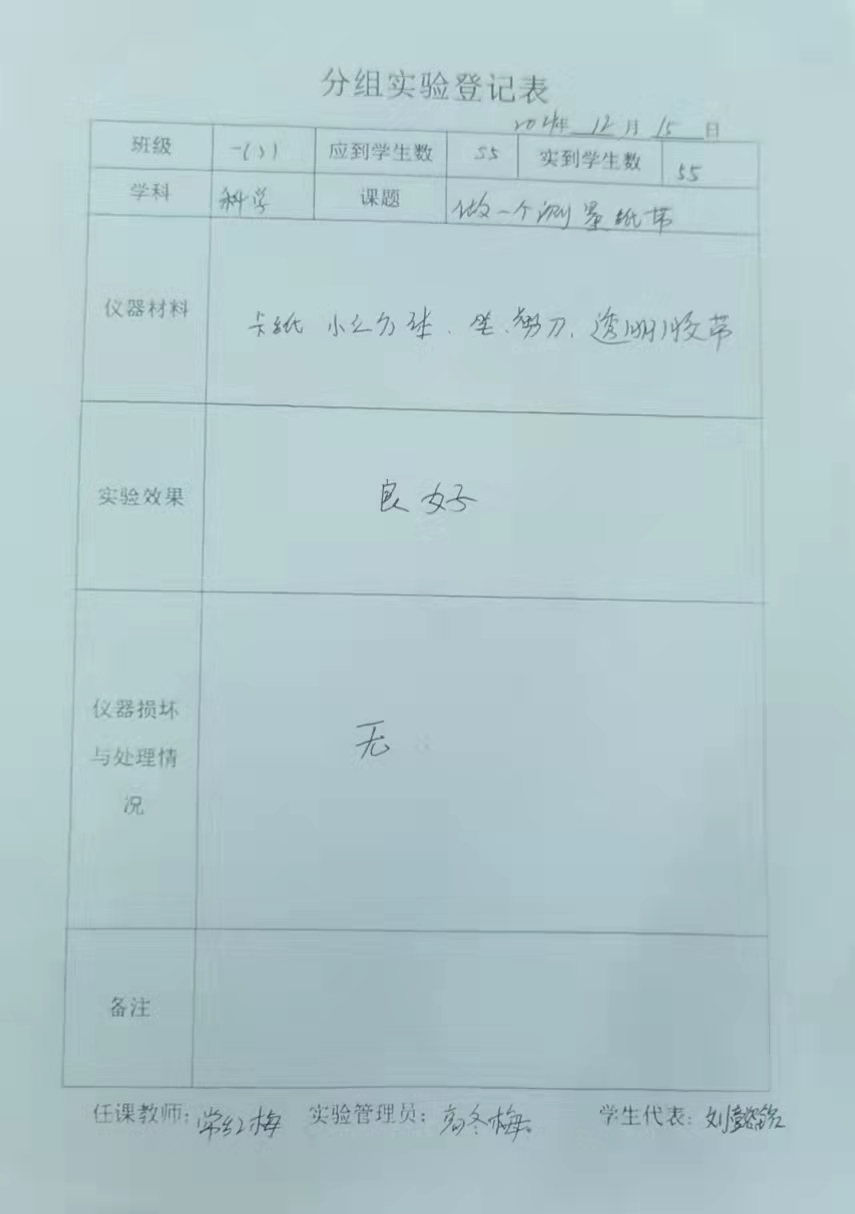 分组实验登记表
年 12 月 15 日
班级 应到学生数 55 实到学生数 55
学科 科学 课题 做一个测量纸带
仪器材料 卡纸 小立方块、笔、剪刀、透明胶带
实验效果 良好
仪器损坏
与处理情
况
无
备注
任课教师：常红梅 实验管理员：高冬梅 学生代表：刘